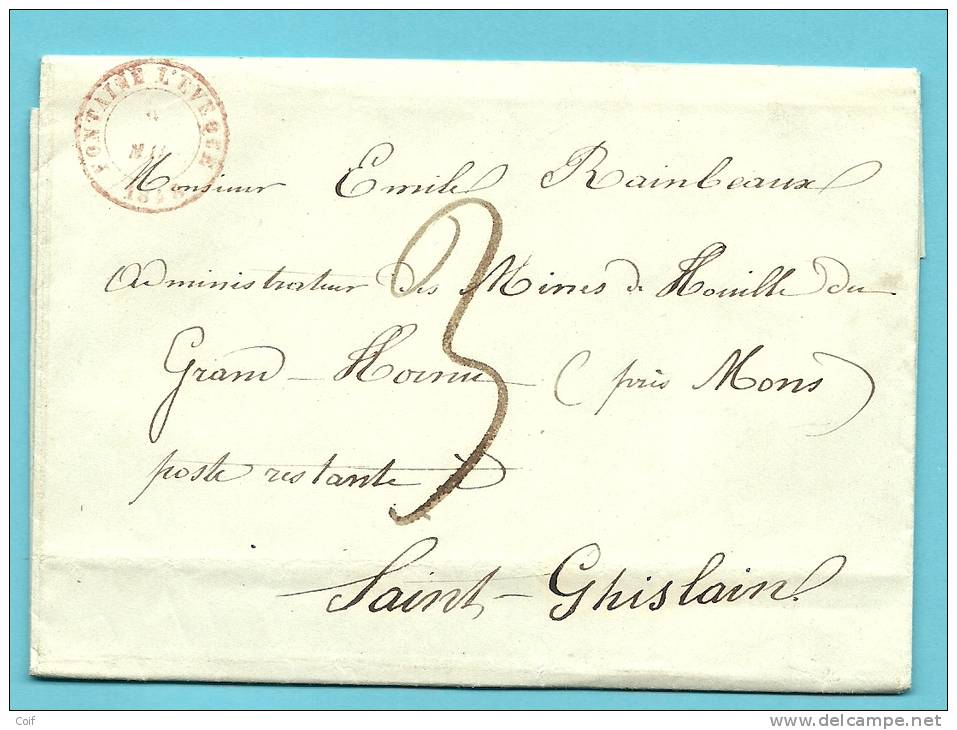 FONTAINE L'EVEQUE
Monsieur Emile Rainbeaux
administrateur des Mines de Houille du
Grand-Hornu (près Mons)
poste restante à
3
Saint-Ghislain
Coif
www.delcampe.net